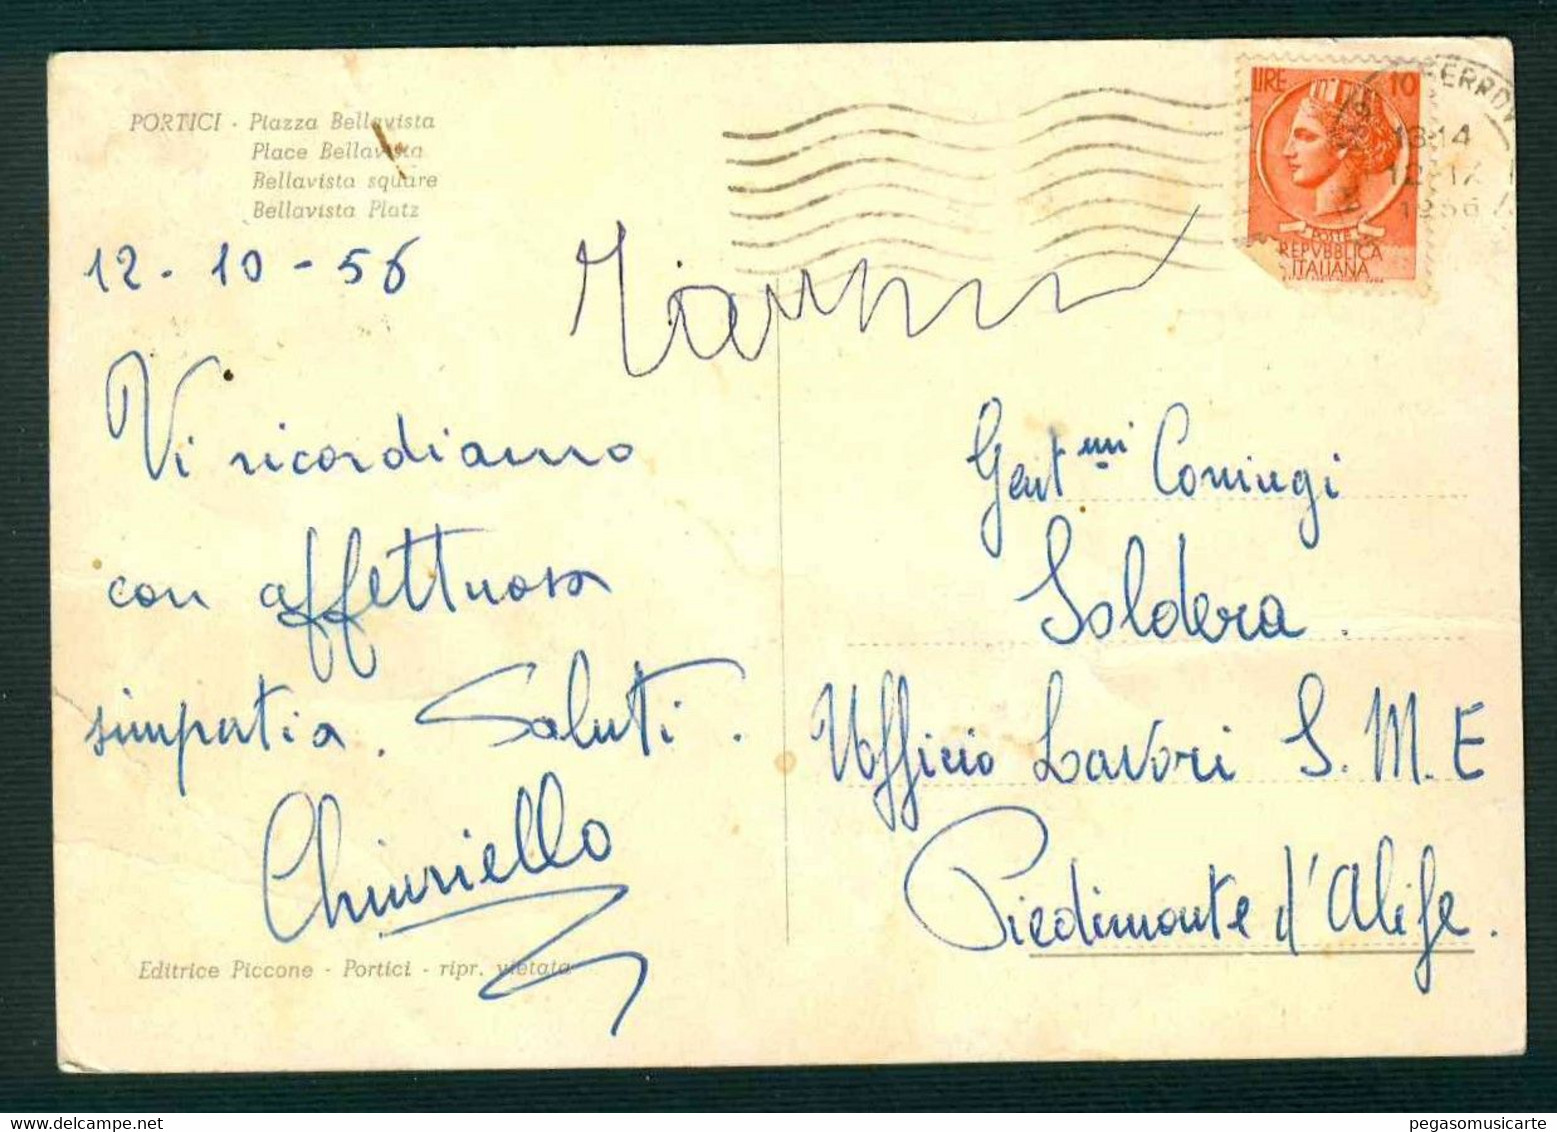 PORTICI - Piazza Bellavista
Place Bellavista
Bellavista square
Bellavista Platz
12-10-56
Vi ricordiamo
con affettuosa
simpatia. Saluti.
Chiuriello
Editrice Piccone - Portici - ripr. vietata
LIRE 10
POSTE
REPVBBLICA
ITALIANA
FERROV
18-14
1956
Gent.mi Coniugi
Soldera.
Ufficio Lavori S.M.E
Piedimonte d'Alife.
pegasomusicarte